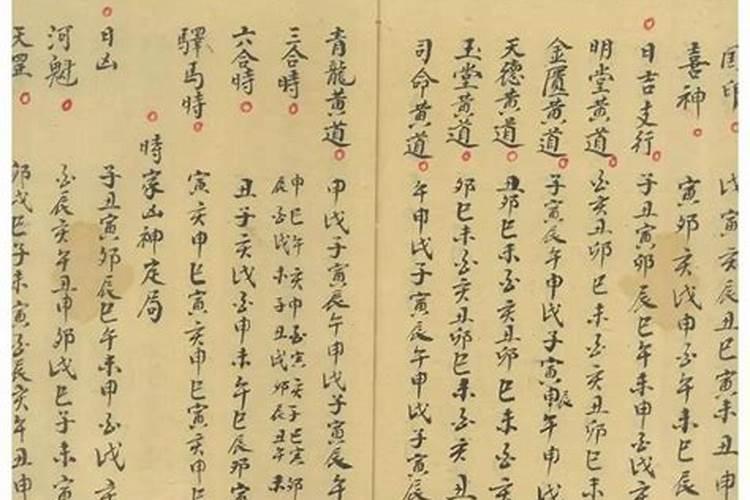 國印 戊寅亥辰丑巳寅未丑申
喜神 寅卯亥戌申酉午未巳辰
日吉支行 子丑寅卯辰巳午未申酉戌亥
明堂黄道 酉亥丑卯巳未酉亥丑卯巳未
金匱黄道 子寅辰午申戌子寅申辰午申
天德黄道 丑卯巳未酉亥丑卯巳未酉
玉堂黄道 卯巳未酉亥丑卯巳未酉亥丑
司命黄道 午申戌子寅辰午申戌子寅辰
青龍黄道 申戌子寅辰午申戌子寅辰午
三合時 申巳午亥申酉寅亥子巳寅卯
辰酉戌未子丑戌卯辰丑午未
六合時 丑子亥戌酉申未午巳辰卯寅
驛馬時 寅亥申巳寅亥申巳寅亥申巳
時家凶神定局
日凶 子丑寅卯辰巳午未申酉戌亥
河魁 酉辰亥午丑申卯戌巳子未寅
天罡 卯戌巳子未寅酉辰亥午丑申